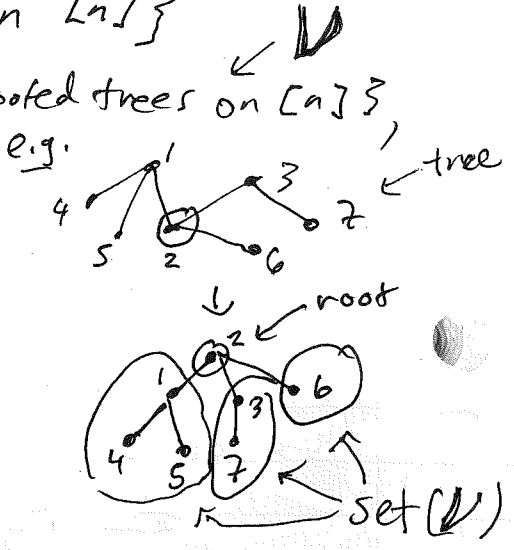 n [n] }
ooted trees on [n] },
e.g.
1
3
tree
4
7
5
2
6
root
2
1
3
6
4
5
7
set(
)